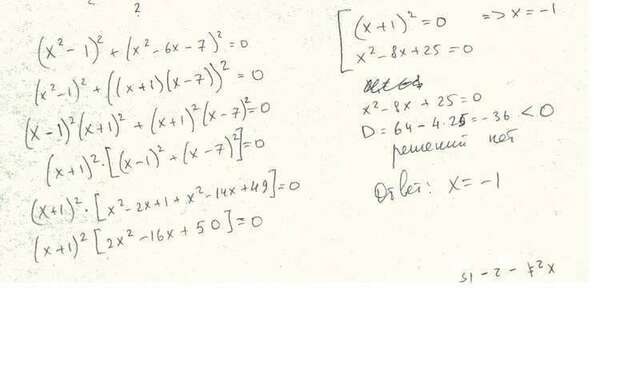 2
(x² - 1)² + (x² - 6x - 7)² = 0
(x² - 1)² + ((x+1)(x-7))² = 0
(x-1)²(x+1)² + (x+1)²(x-7)² = 0
(x+1)² · [(x-1)² + (x-7)²] = 0
(x+1)² · [x² - 2x + 1 + x² - 14x + 49] = 0
(x+1)² [2x² - 16x + 50] = 0
[ (x+1)² = 0 => x = -1
x² - 8x + 25 = 0
x² - 8x + 25 = 0
D = 64 - 4·25 = -36 < 0
решений нет
Ответ: x = -1